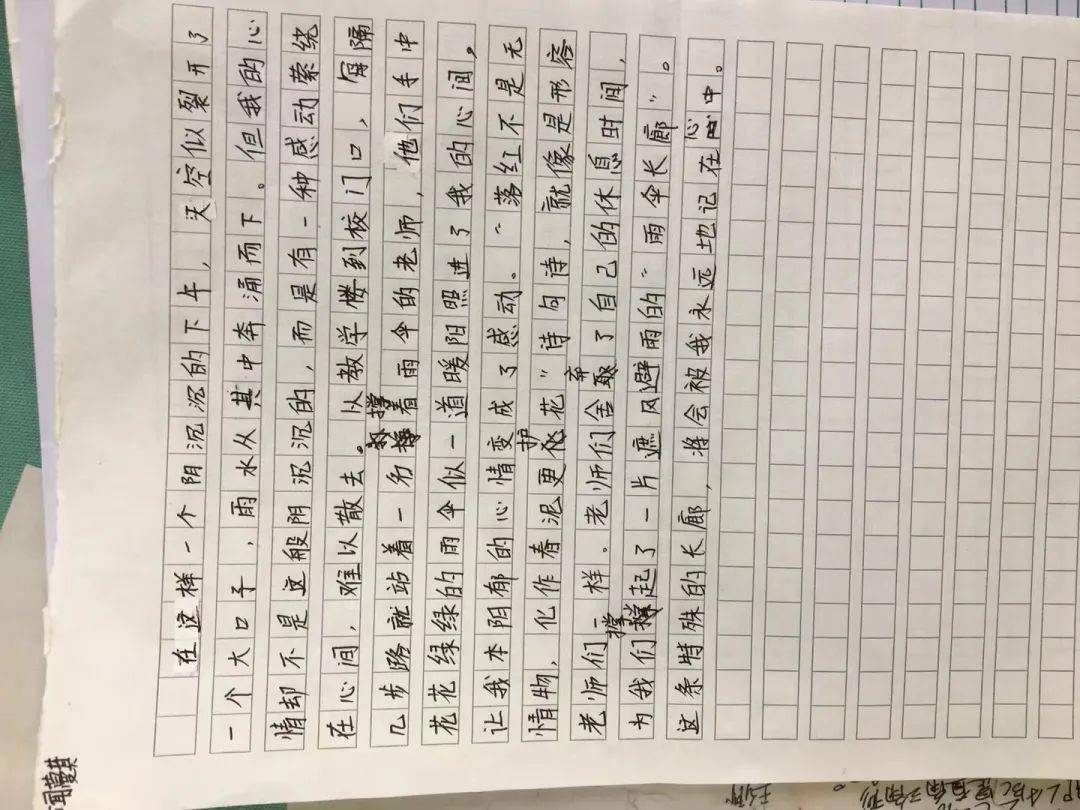 在这样一个阴沉沉的下午，天空似裂开了
一个大口子，雨水从其中奔涌而下。但我的心
情却不是这般阴沉沉的，而是有一种感动萦绕
在心间，难以散去。从教学楼到校门口，每隔
几步路就站着一名撑着雨伞的老师，他们手中
花花绿绿的雨伞似一道暖阳照进了我的心间。
让我本阴郁的心情变成了感动。“落红不是无
情物，化作春泥更护花”诗句诗，就像是形容
老师们一样。老师们舍弃了自己的休息时间，
为我们撑起了一片遮风避雨的“雨伞长廊”。
这条特殊的长廊，将会被我永远地记在心中。